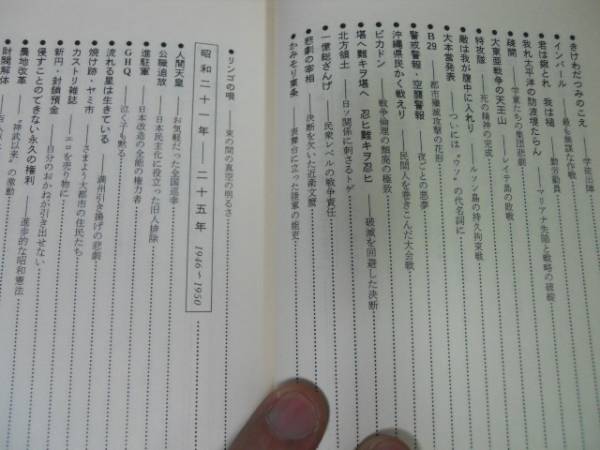 ● きけわだつみのこえ——学徒出陣
● インパール——最も無謀な作戦
● 君は鍬とれ 我は槌——勤労動員
● 我れ太平洋の防波堤たらん——マリアナ失陥と戦略の破綻
● 疎開——学童たちの集団悲劇
● 大東亜戦争の天王山——レイテ島の敗戦
● 特攻隊——死の精神の完成
● 敵は我が腹中に入れり——ルソン島の持久拘束戦
● 大本営発表——ついには〝ウソ〟の代名詞に
● B29——都市殲滅攻撃の花形
● 警戒警報・空襲警報——夜ごとの悪夢
● 沖縄県民かく戦えり——民間人を巻きこんだ大会戦
● ピカドン——戦争倫理の頽廃の極致
● 堪ヘ難キヲ堪ヘ 忍ヒ難キヲ忍ヒ——破滅を回避した決断
● 北方領土——日ソ関係に刺さるトゲ
● 一億総ざんげ——民衆レベルの戦争責任
● 悲劇の宰相——決断を欠いた近衛文麿
● かみそり東条——表舞台に立った陸軍の能吏
● リンゴの唄——束の間の真空の明るさ
昭和二十一年——二十五年 1946〜1950
● 人間天皇——お気軽だった全国巡幸
● 公職追放——日本民主化に役立った旧人排除
● 進駐軍——日本改造の全能の権力者
● GHQ——泣く子も黙る
● 流れる星は生きている——満州引き揚げの悲劇
● 焼け跡・ヤミ市——さまよう大都市の住民たち
● カストリ雑誌——エロを売り物に
● 新円・封鎖預金——自分のおかねが引き出せない
● 侵すことのできない永久の権利——進歩的な昭和憲法
● 農地改革——〝神武以来〟の激動
● 財閥解体